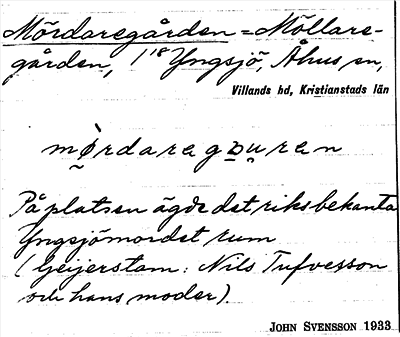 Mördaregården = Möllare-
gården, 1¹⁸ Yngsjö, Åhus sn,
Villands hd, Kristianstads län
På platsen ägde det riksbekanta
Yngsjömordet rum
(Geijerstam: Nils Tufvesson
och hans moder).
JOHN SVENSSON 1933